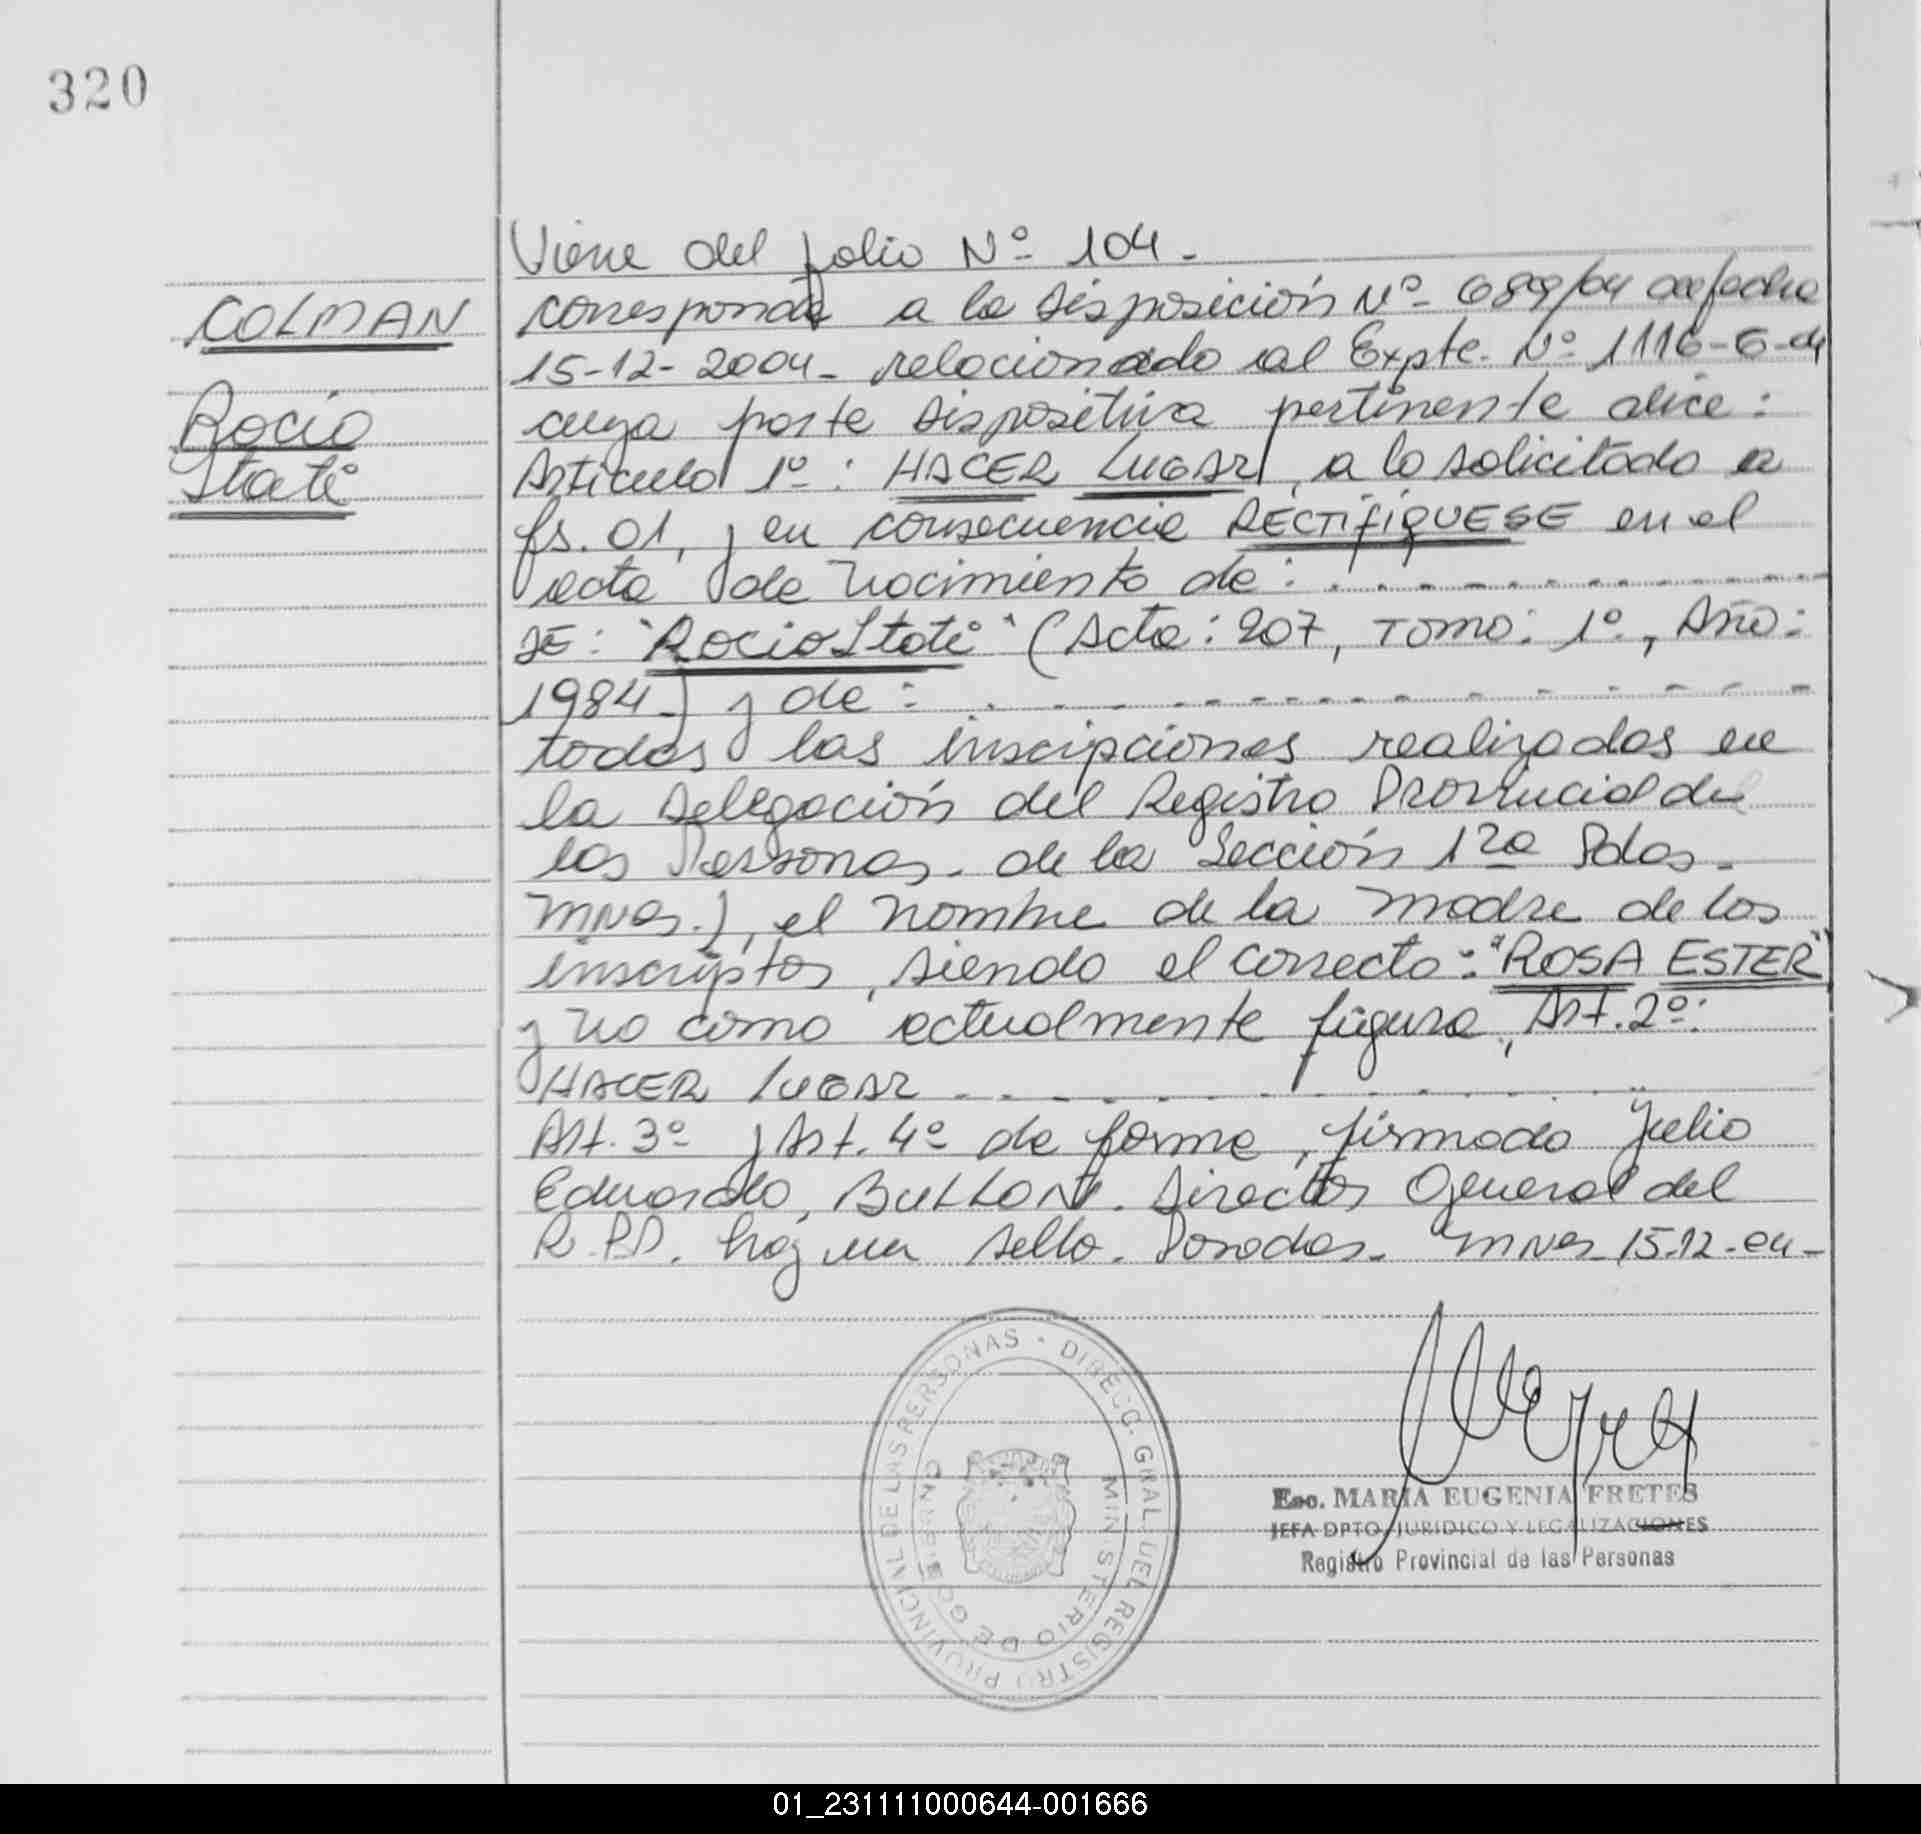 320
COLMAN
Rocio
Itati
Viene del folio Nº 104.-
corresponde a la Disposición Nº 689/04 de fecha
15-12-2004- relacionado al Expte. Nº 1116-G-04
cuya parte dispositiva pertinente dice:
Articulo 1º: HACER LUGAR, a lo solicitado a
fs. 01, y en consecuencia RECTIFIQUESE en el
acta de nacimiento de:
DE: "Rocio Itati" (Acta: 207, Tomo: 1º, Año:
1984-) y de:
todas las inscipciones realizadas en
la Delegación del Registro Provincial de
las Personas. de la Sección 1ra Pdas-
Mnes.), el nombre de la madre de los
inscriptos, siendo el correcto: "ROSA ESTER"
y no como actualmente figura, Art. 2º:
HACER LUGAR
Art. 3º y Art. 4º de forma, firmado Julio
Eduardo, BULLON. Director General del
R.P.P. hay un sello. Posadas- Mnes 15-12-04-
DIRECC. GRAL. DEL REGISTRO PROVINCIAL DE LAS PERSONAS
MINISTERIO DE GOBIERNO
Esc. MARIA EUGENIA FRETES
JEFA DPTO. JURIDICO Y LEGALIZACIONES
Registro Provincial de las Personas
01_231111000644-001666